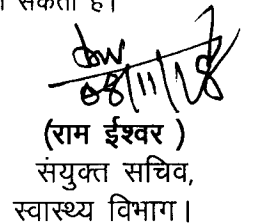 सकता है।
08/11/18
(राम ईश्वर )
संयुक्त सचिव,
स्वास्थ्य विभाग।